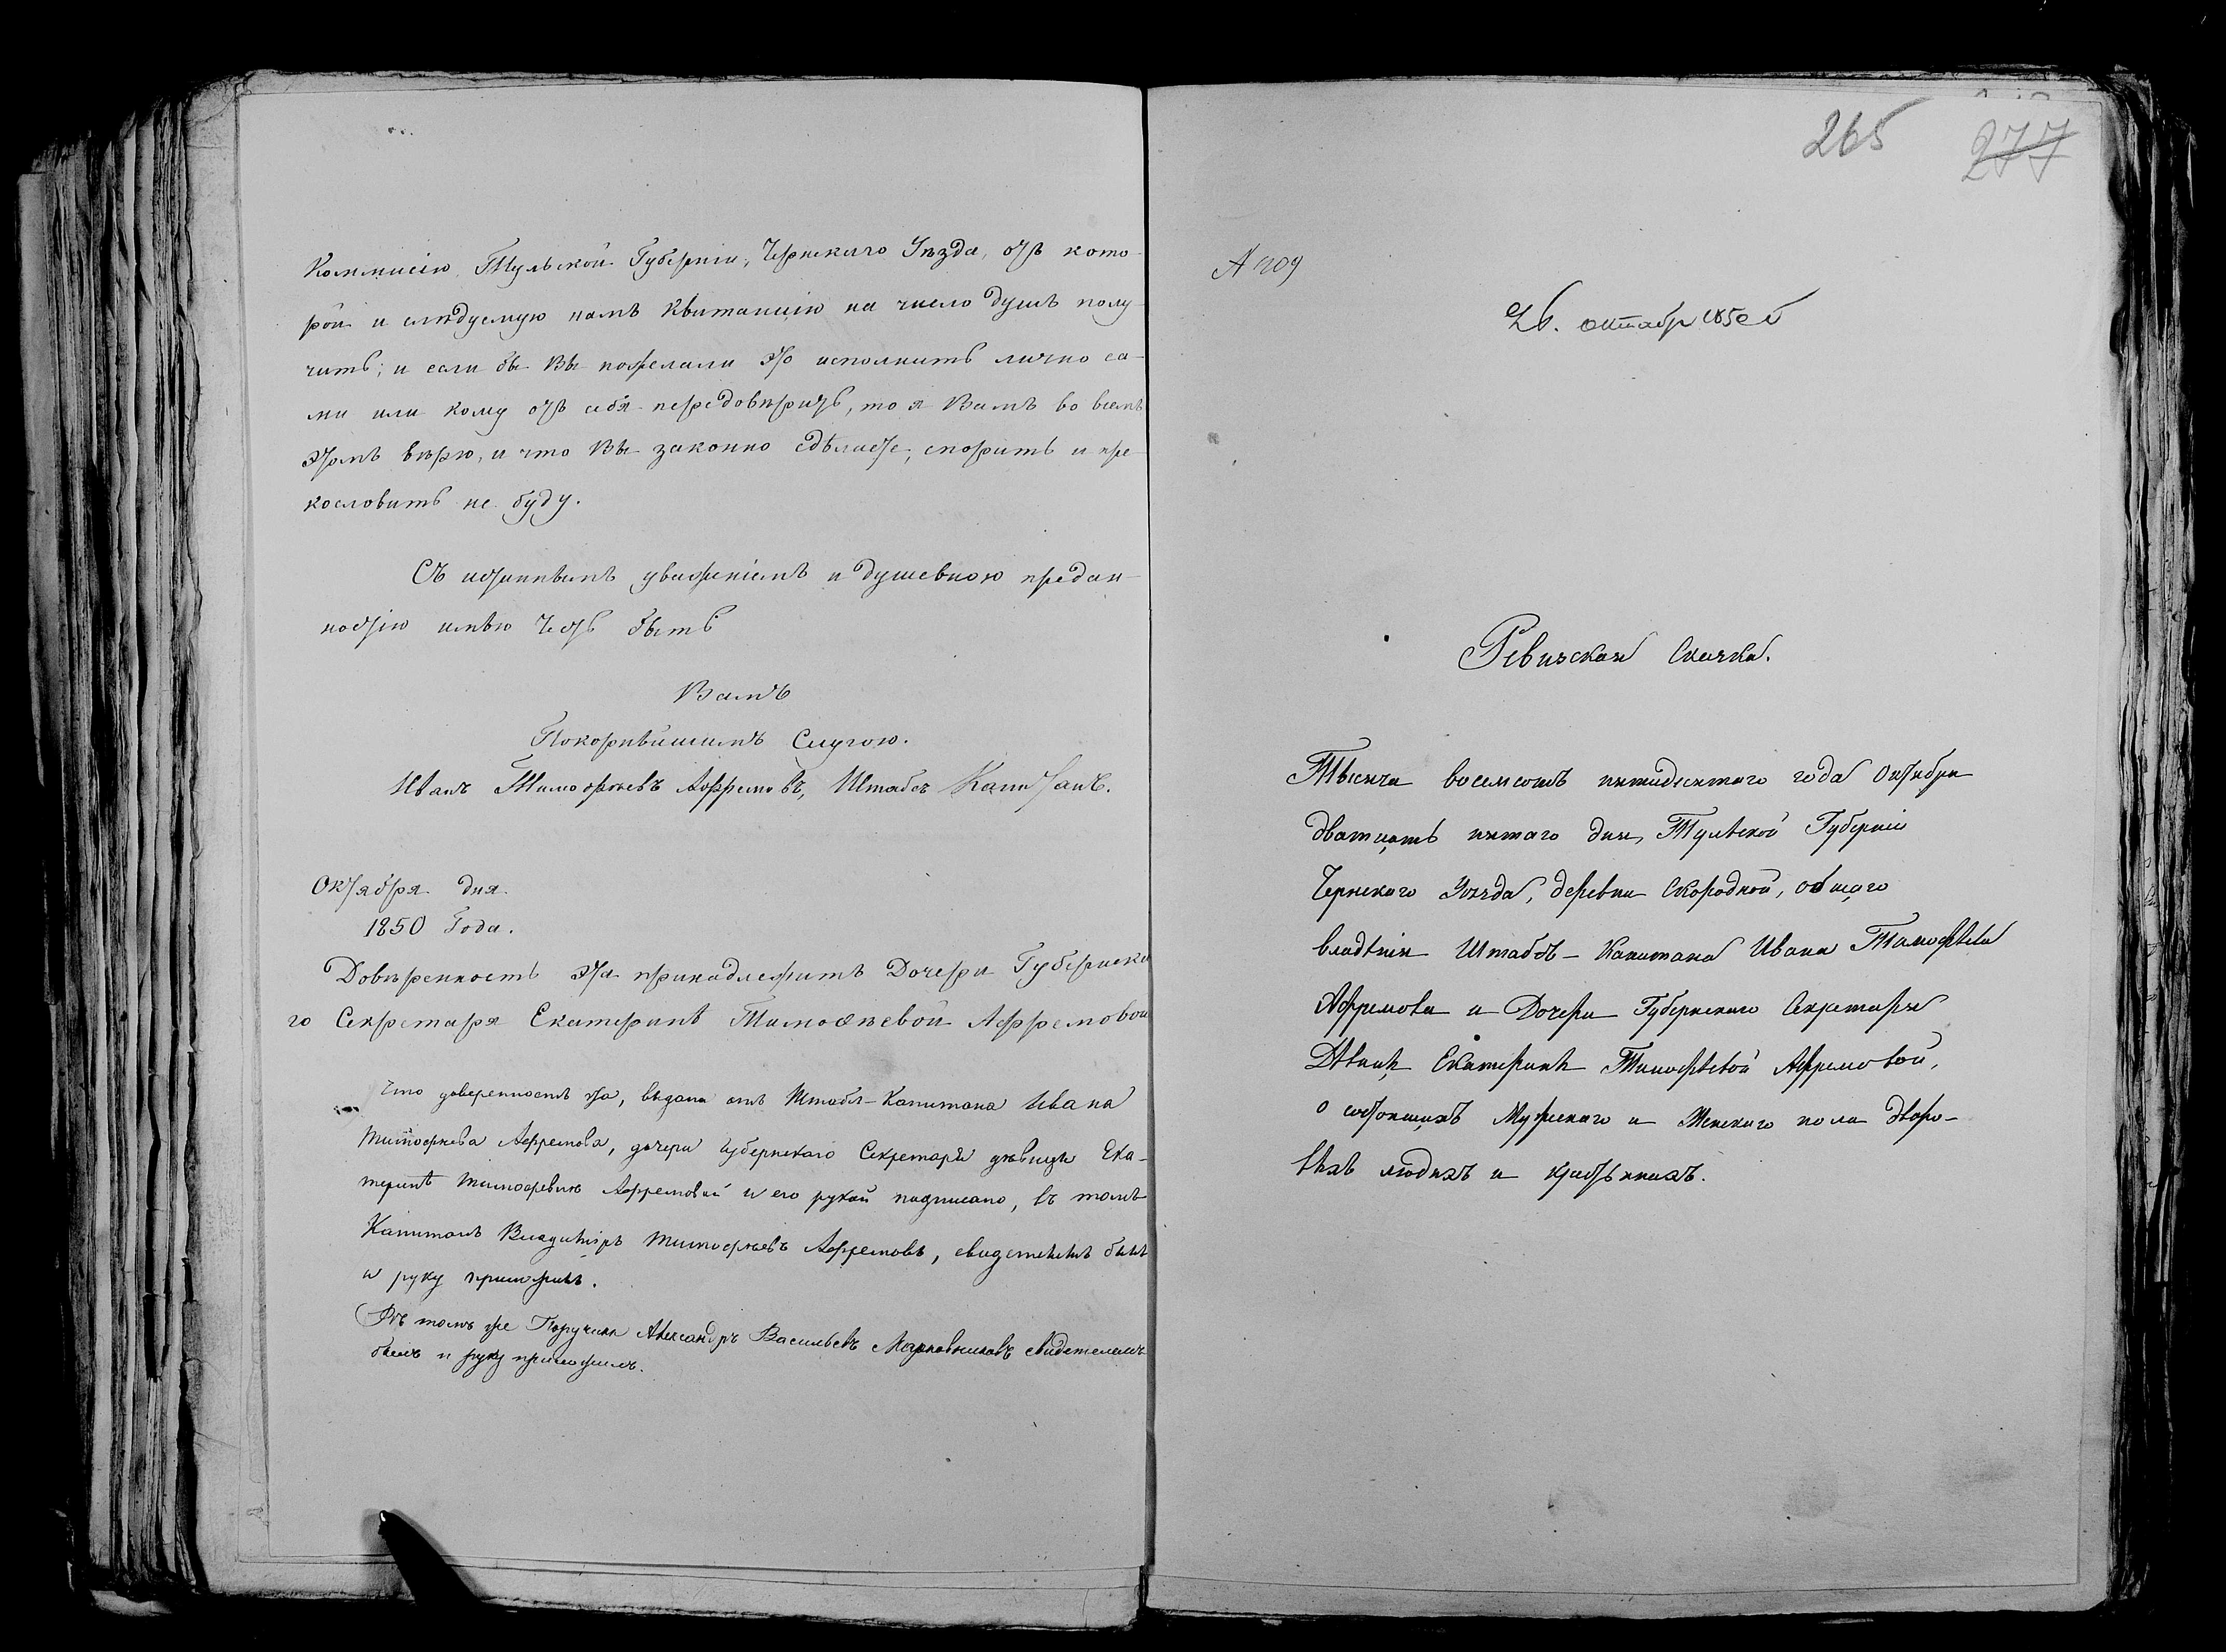 Коммисію Тульской Губерніи, Чернскаго Уѣзда, отъ кото-
рой и слѣдуемую намъ квитанцію на число душъ полу-
чить; и если бы Вы пожелали это исполнить лично са-
ми или кому отъ себя передовѣрить, то я Вамъ во всемъ
этомъ вѣрю, и что Вы законно сдѣлаете, спорить и пре
кословить не буду.
Съ истиннымъ уваженіемъ и душевною предан-
ностію имѣю честь быть
Вамъ
Покорнѣйшимъ Слугою.
Иванъ Тимофѣевъ Афремовъ, Штабсъ Капитанъ.
Октября дня.
1850 Года.
Довѣренность эта принадлежитъ Дочери Губернска
го Секретаря Екатеринѣ Тимофѣевой Афремовой
Что доверенность эта, выдана отъ Штабсъ-Капитана Ивана
Тимофѣева Афремова, дочери губернскаго Секретаря дѣвицѣ Ека-
теринѣ Тимофевнѣ Афремовой и его рукой подписано, въ томъ
Капитанъ Владиміръ Тимофѣевъ Афремовъ, свидетелемъ былъ
и руку приложилъ.
Въ томъ же Поручикъ Александръ Васильевъ свидетелемъ
былъ и руку приложилъ.
265 277
№ 109
26. октабр 1850
Ревизская Сказка.
Тысяча восемсотъ пятидесятаго года Октября
дватцать пятаго дня, Тульской Губерніи
Чернскаго Уѣзда, деревни Скородной, общаго
владѣнія Штабсъ-Капитана Ивана Тимофѣева
Афремова и Дочери Губернскаго Секретаря
Дѣвицѣ Екатеринѣ Тимофѣевой Афремовой,
о состоящихъ Мужскаго и Женскаго пола дворо-
выхъ людяхъ и крестьянахъ.